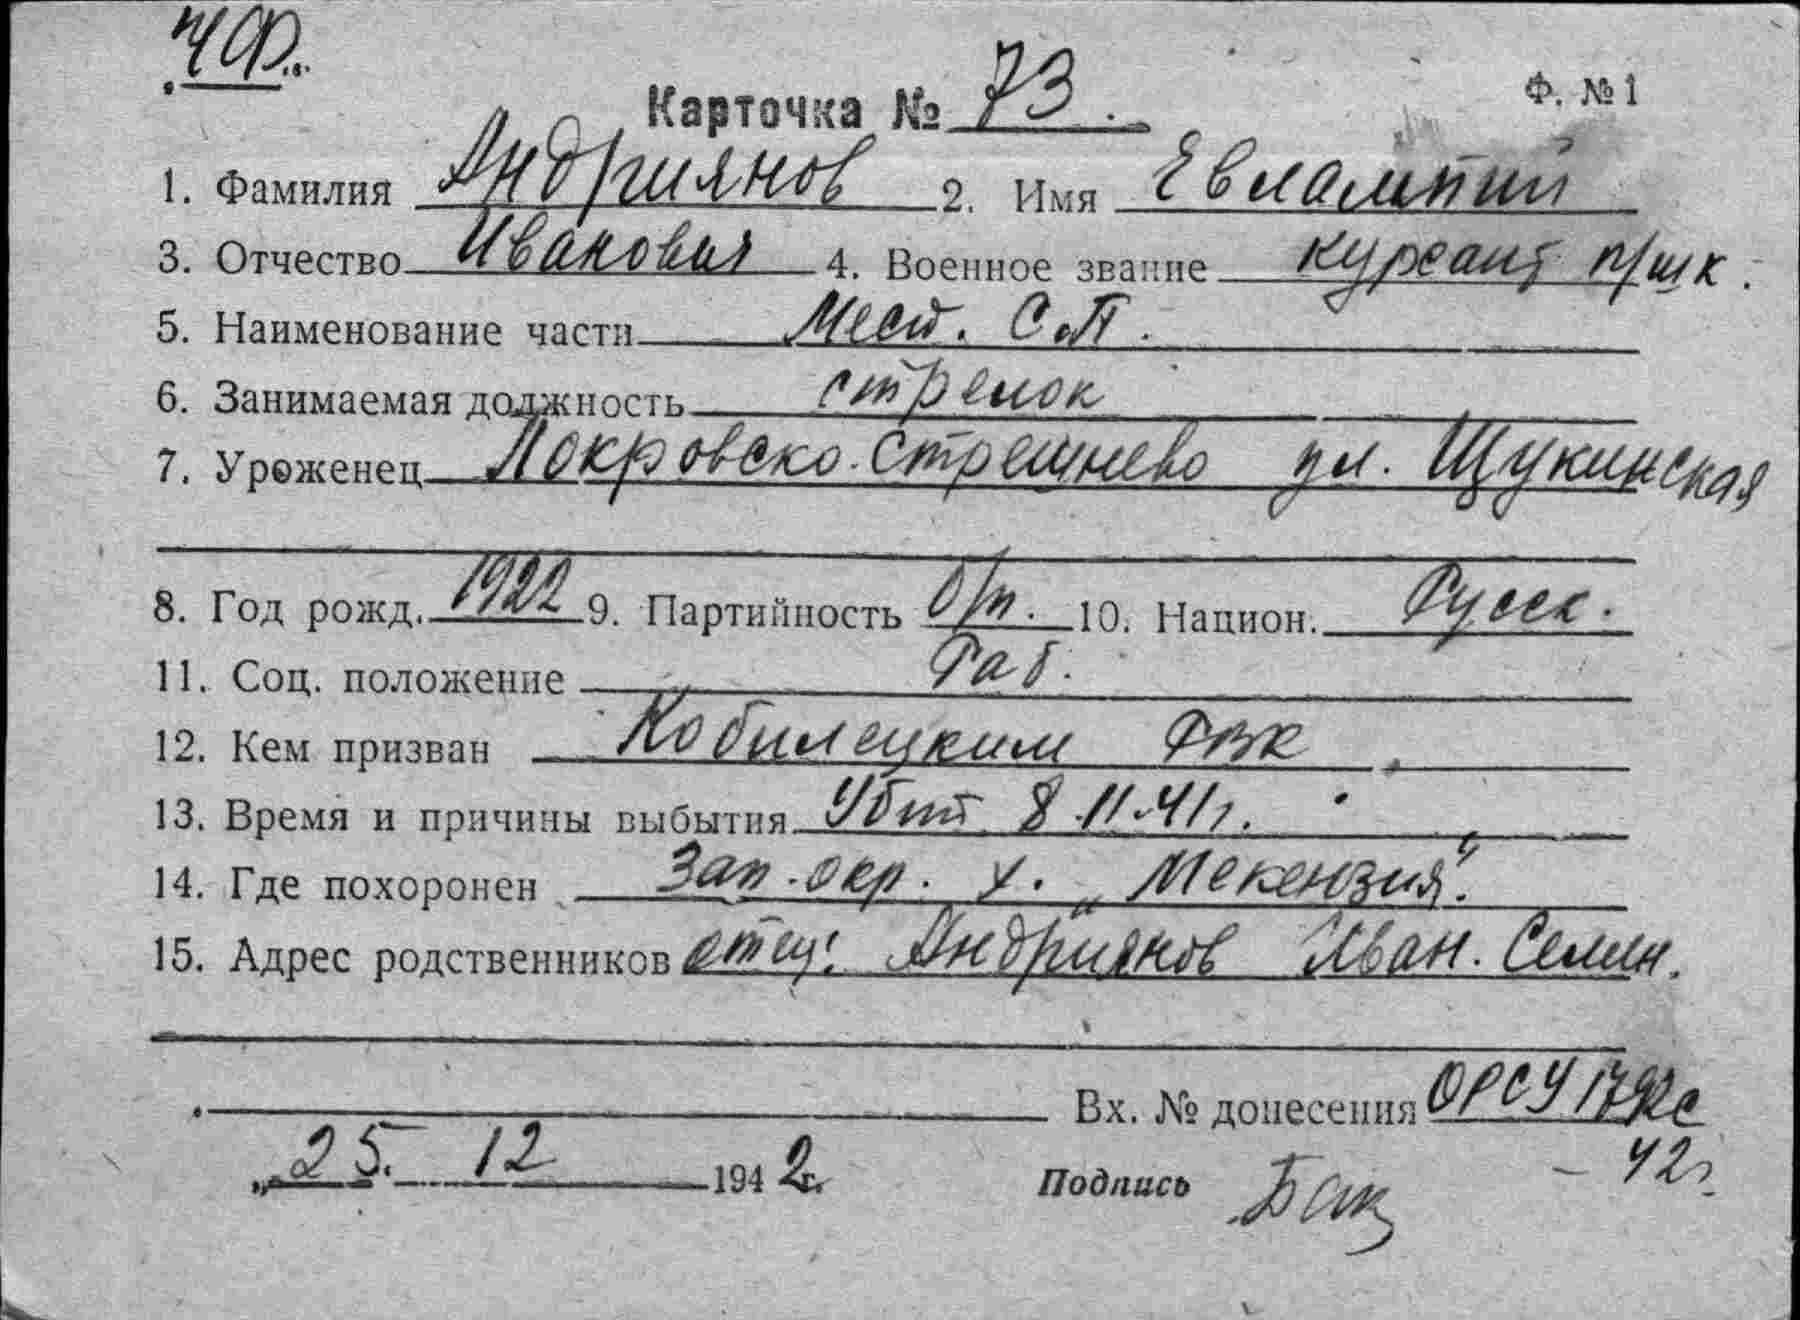 ЧФ.
Карточка № 73.
Ф. №1
1. Фамилия Андриянов 2. Имя Евлампий
3. Отчество Иванович 4. Военное звание курсант п/шк.
5. Наименование части Мест. С.П.
6. Занимаемая должность стрелок
7. Уроженец Покровско-Стрешнево ул. Щукинская
8. Год рожд. 1922 9. Партийность б/п. 10. Национ. Русск.
11. Соц. положение Раб.
12. Кем призван Кобилецким РВК
13. Время и причины выбытия Убит 8.11.41г.
14. Где похоронен Зап. окр. х. „Мекензия".
15. Адрес родственников отец: Андриянов Иван. Семен.
Вх. № донесения ОРСУ
„25. 12 1942г. Подпись
-42г.